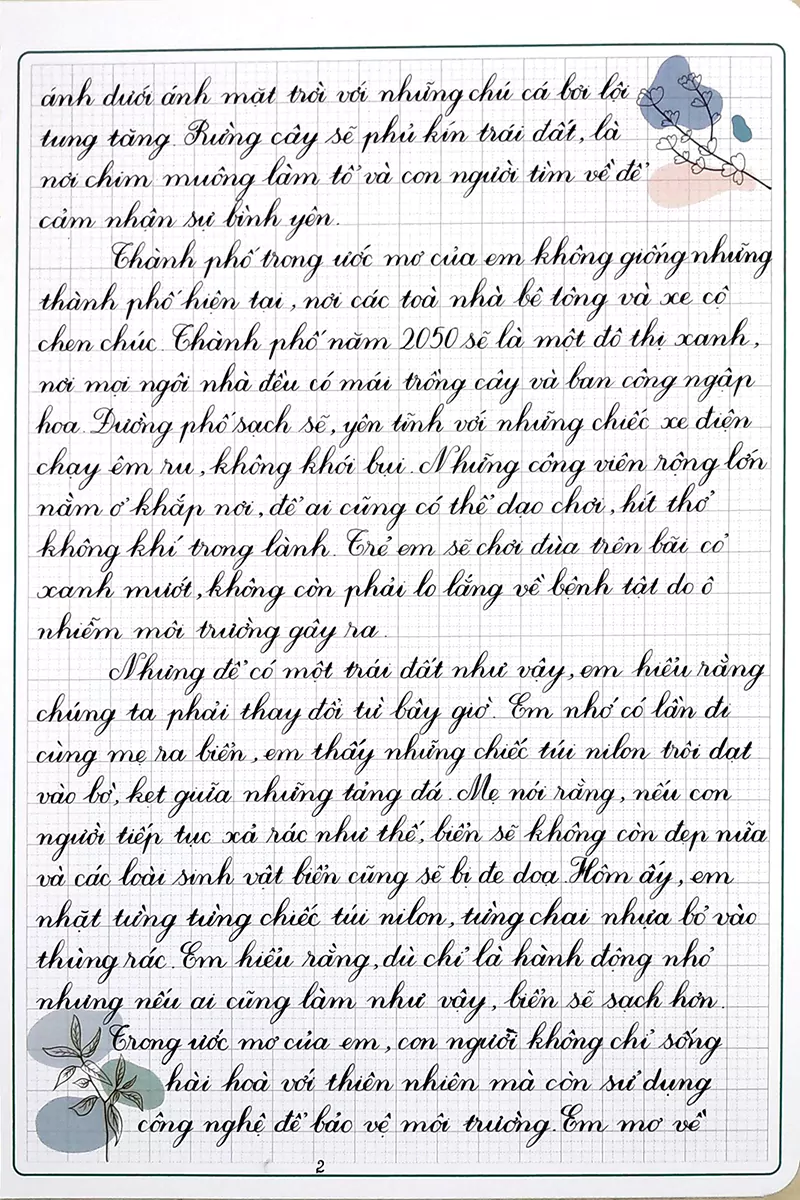 ánh dưới ánh mặt trời với những chú cá bơi lội
tung tăng. Rừng cây sẽ phủ kín trái đất, là
nơi chim muông làm tổ và con người tìm về để
cảm nhận sự bình yên.
Thành phố trong ước mơ của em không giống những
thành phố hiện tại, nơi các toà nhà bê tông và xe cộ
chen chúc. Thành phố năm 2050 sẽ là một đô thị xanh,
nơi mọi ngôi nhà đều có mái trồng cây và ban công ngập
hoa. Đường phố sạch sẽ, yên tĩnh với những chiếc xe điện
chạy êm ru, không khói bụi. Những công viên rộng lớn
nằm ở khắp nơi, để ai cũng có thể dạo chơi, hít thở
không khí trong lành. Trẻ em sẽ chơi đùa trên bãi cỏ
xanh mướt, không còn phải lo lắng về bệnh tật do ô
nhiễm môi trường gây ra.
Nhưng để có một trái đất như vậy, em hiểu rằng
chúng ta phải thay đổi từ bây giờ. Em nhớ có lần đi
cùng mẹ ra biển, em thấy những chiếc túi nilon trôi dạt
vào bờ, kẹt giữa những tảng đá. Mẹ nói rằng, nếu con
người tiếp tục xả rác như thế, biển sẽ không còn đẹp nữa
và các loài sinh vật biển cũng sẽ bị đe doạ. Hôm ấy, em
nhặt từng từng chiếc túi nilon, từng chai nhựa bỏ vào
thùng rác. Em hiểu rằng, dù chỉ là hành động nhỏ
nhưng nếu ai cũng làm như vậy, biển sẽ sạch hơn.
Trong ước mơ của em, con người không chỉ sống
hài hoà với thiên nhiên mà còn sử dụng
công nghệ để bảo vệ môi trường. Em mơ về
2